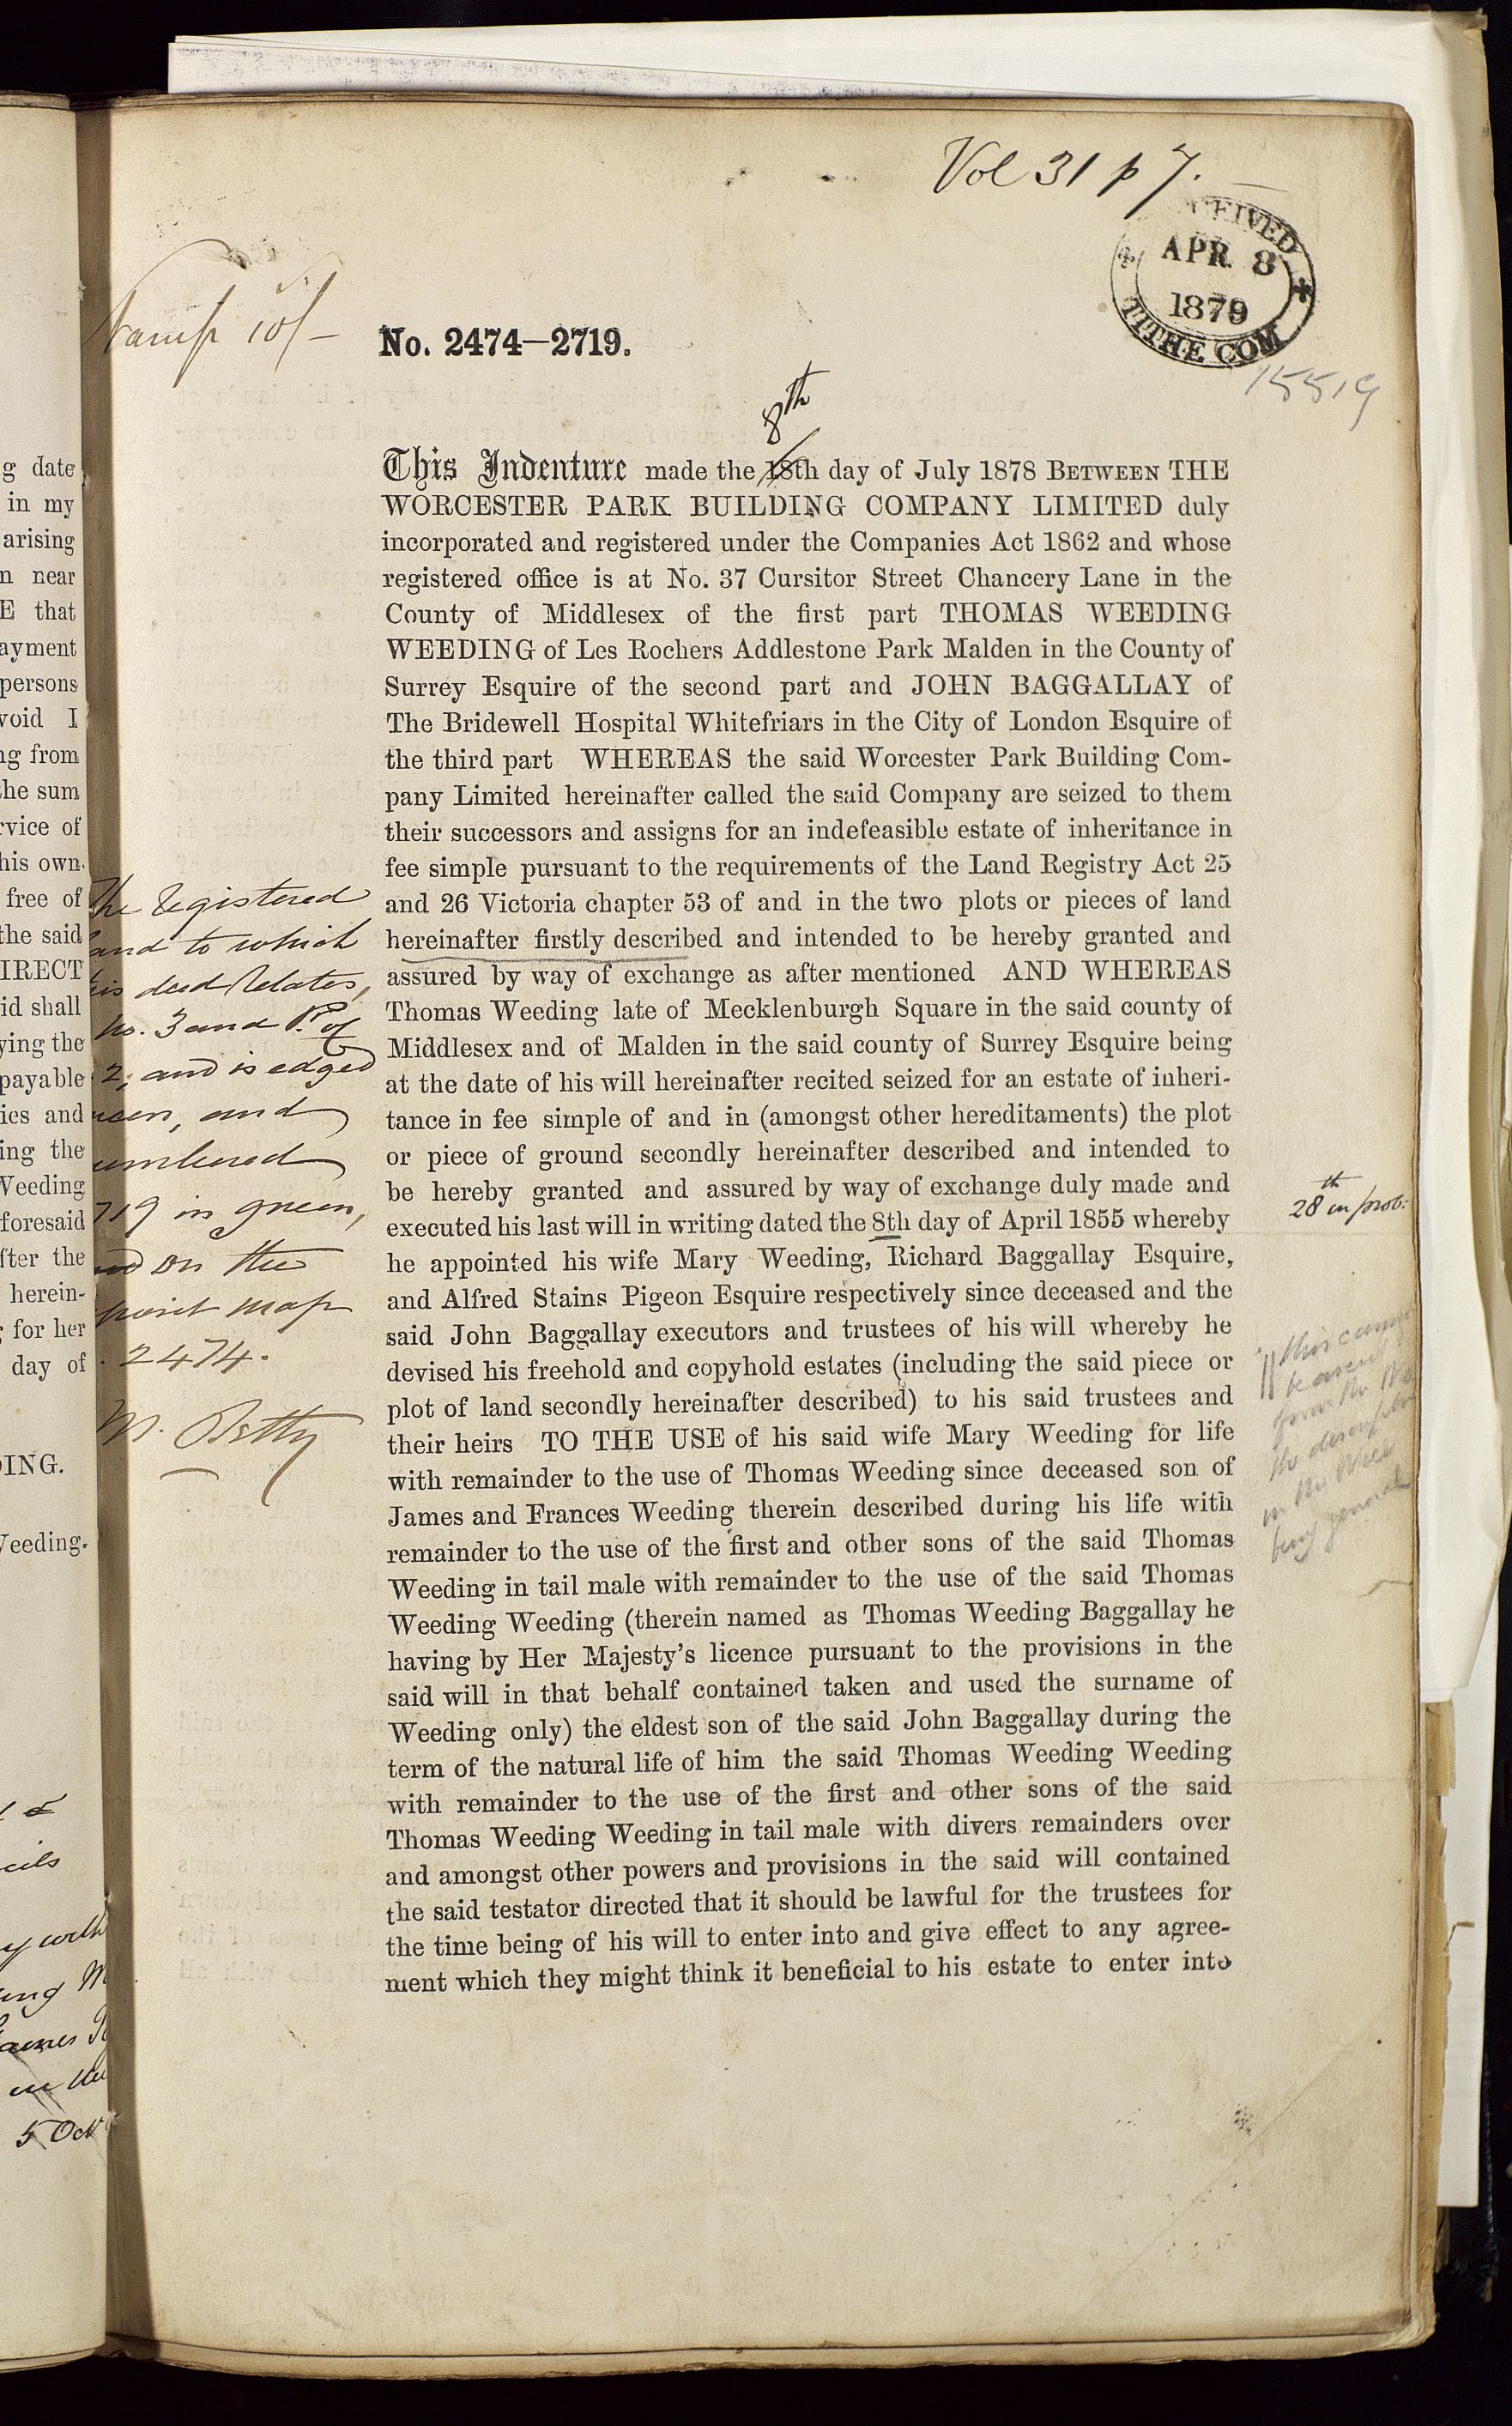 Vol 31 p 7.
RECEIVED
APR 8
1879
TITHE COM
15519
Stamp 10/-
No. 2474—2719.
8th
This Indenture made the 18th day of July 1878 BETWEEN THE
WORCESTER PARK BUILDING COMPANY LIMITED duly
incorporated and registered under the Companies Act 1862 and whose
registered office is at No. 37 Cursitor Street Chancery Lane in the
County of Middlesex of the first part THOMAS WEEDING
WEEDING of Les Rochers Addlestone Park Malden in the County of
Surrey Esquire of the second part and JOHN BAGGALLAY of
The Bridewell Hospital Whitefriars in the City of London Esquire of
the third part WHEREAS the said Worcester Park Building Com-
pany Limited hereinafter called the said Company are seized to them
their successors and assigns for an indefeasible estate of inheritance in
fee simple pursuant to the requirements of the Land Registry Act 25
and 26 Victoria chapter 53 of and in the two plots or pieces of land
hereinafter firstly described and intended to be hereby granted and
assured by way of exchange as after mentioned AND WHEREAS
Thomas Weeding late of Mecklenburgh Square in the said county of
Middlesex and of Malden in the said county of Surrey Esquire being
at the date of his will hereinafter recited seized for an estate of inheri-
tance in fee simple of and in (amongst other hereditaments) the plot
or piece of ground secondly hereinafter described and intended to
be hereby granted and assured by way of exchange duly made and
executed his last will in writing dated the 8th day of April 1855 whereby
he appointed his wife Mary Weeding, Richard Baggallay Esquire,
and Alfred Stains Pigeon Esquire respectively since deceased and the
said John Baggallay executors and trustees of his will whereby he
devised his freehold and copyhold estates (including the said piece or
plot of land secondly hereinafter described) to his said trustees and
their heirs TO THE USE of his said wife Mary Weeding for life
with remainder to the use of Thomas Weeding since deceased son of
James and Frances Weeding therein described during his life with
remainder to the use of the first and other sons of the said Thomas
Weeding in tail male with remainder to the use of the said Thomas
Weeding Weeding (therein named as Thomas Weeding Baggallay he
having by Her Majesty's licence pursuant to the provisions in the
said will in that behalf contained taken and used the surname of
Weeding only) the eldest son of the said John Baggallay during the
term of the natural life of him the said Thomas Weeding Weeding
with remainder to the use of the first and other sons of the said
Thomas Weeding Weeding in tail male with divers remainders over
and amongst other powers and provisions in the said will contained
the said testator directed that it should be lawful for the trustees for
the time being of his will to enter into and give effect to any agree-
ment which they might think it beneficial to his estate to enter into
The registered
land to which
this deed relates,
no. 3 and P. of
2, and is edged
green, and
numbered
2719 in green,
and on the
deposit map
2474.
M. Betty
28th in prob:
this cannot
in the Will
being general
g date
in my
arising
n near
E that
ayment
persons
void I
ng from
the sum
rvice of
his own
free of
the said
IRECT
id shall
ying the
payable
ies and
ing the
Weeding
foresaid
fter the
herein-
for her
day of
ING.
Weeding.
cils
y with
ung M
James
in the
5 Oct